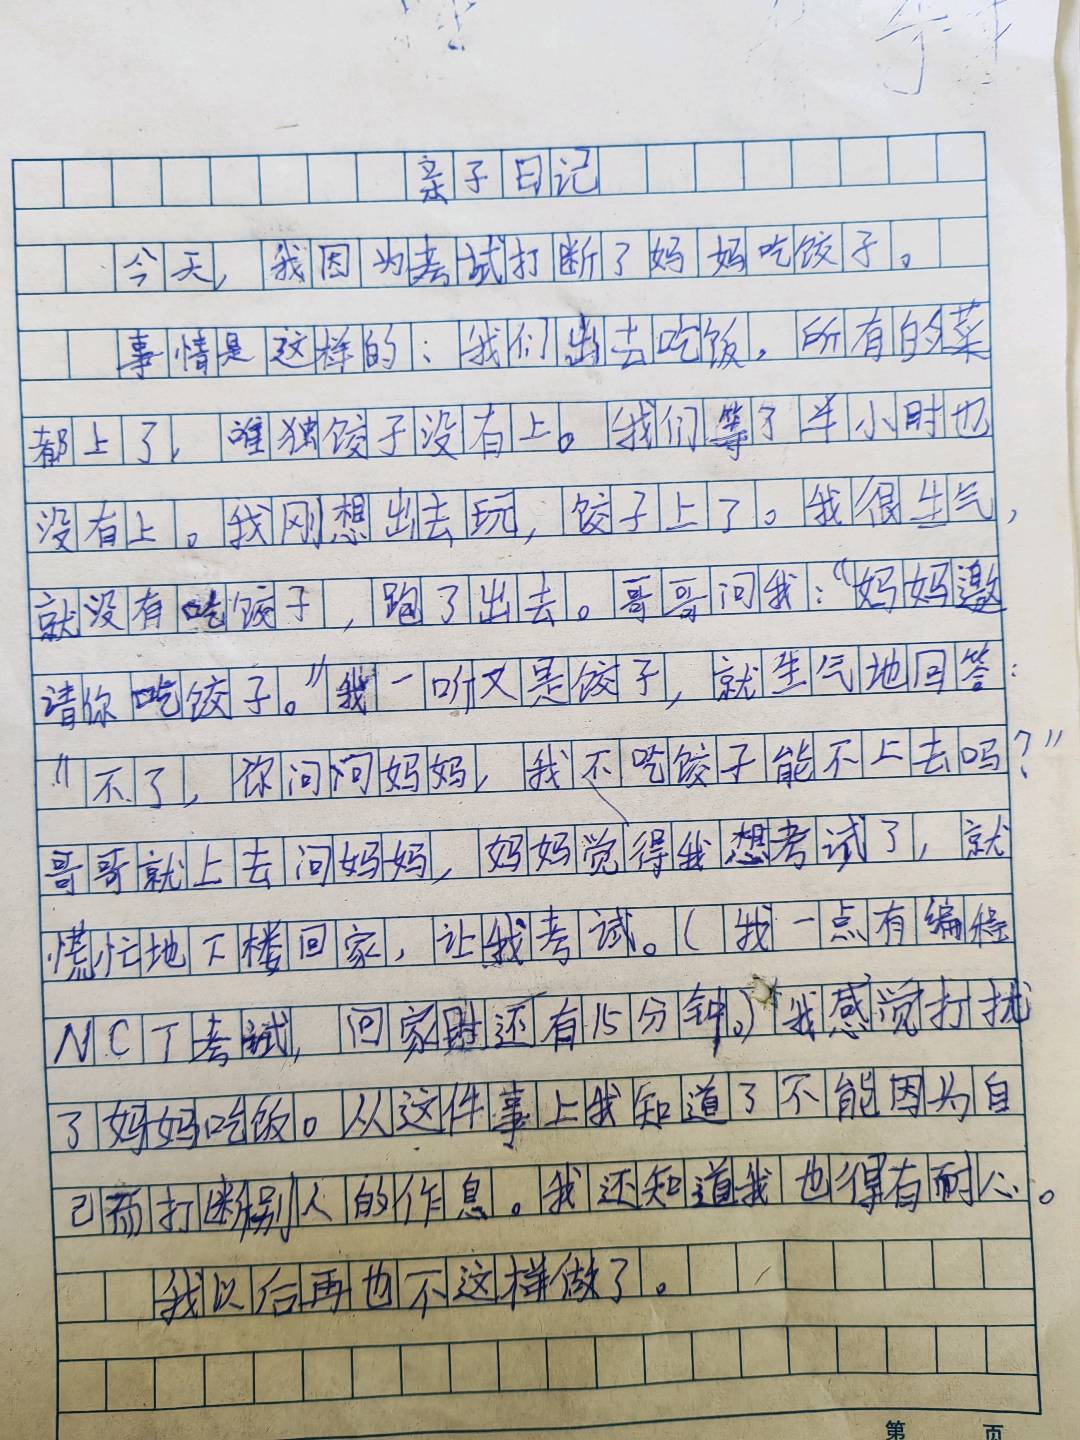 亲子日记
今天，我因为考试打断了妈妈吃饺子。
事情是这样的：我们出去吃饭，所有的菜
都上了，唯独饺子没有上。我们等了半小时也
没有上。我刚想出去玩，饺子上了。我很生气，
就没有吃饺子，跑了出去。哥哥问我：“妈妈邀
请你吃饺子。”我一听又是饺子，就生气地回答：
“不了，你问问妈妈，我不吃饺子能不上去吗？”
哥哥就上去问妈妈，妈妈觉得我想考试了，就
慌忙地下楼回家，让我考试。（我一点有编程
NCT考试，回家时还有15分钟。）我感觉打扰
了妈妈吃饭。从这件事上我知道了不能因为自
己而打断别人的作息。我还知道我也得有耐心。
我以后再也不这样做了。
第 页